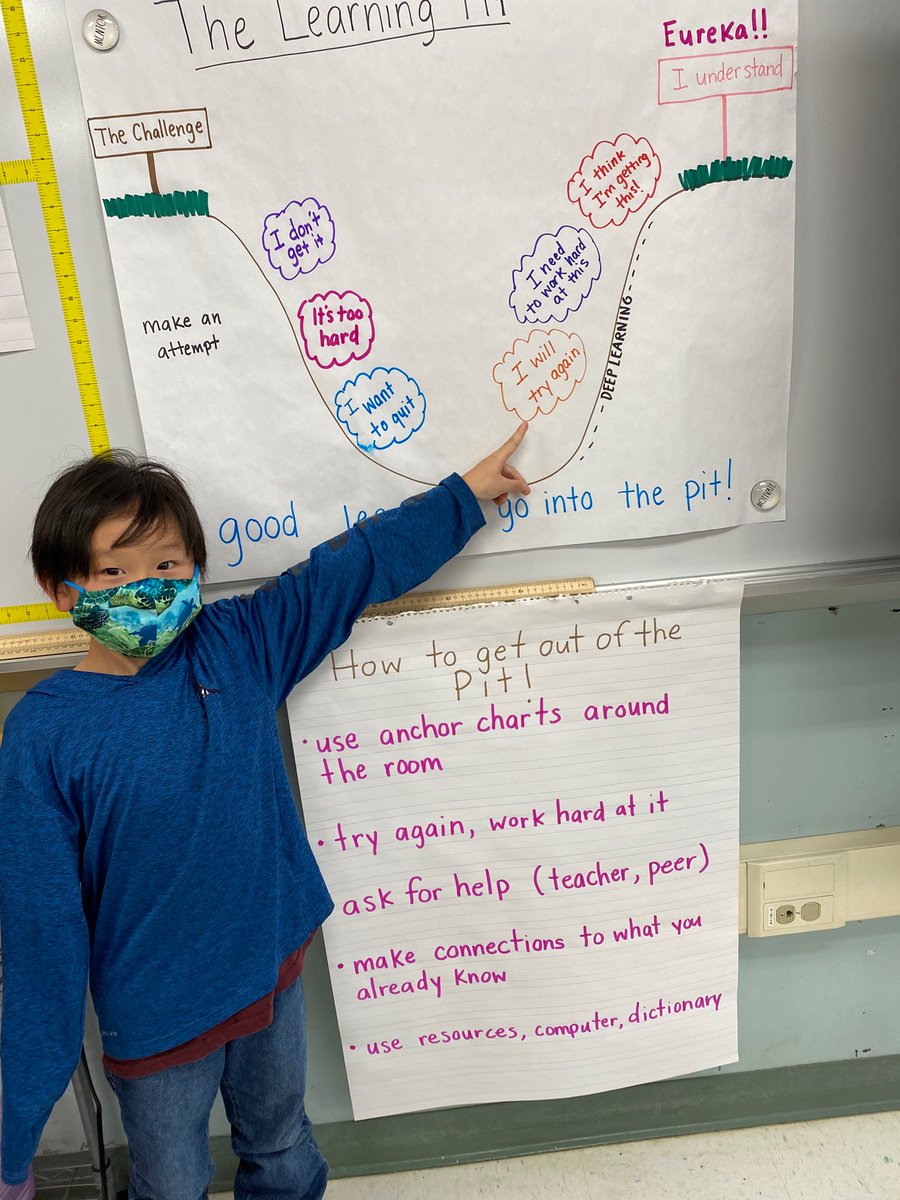 The Learning Pit
Eureka!!
I understand
The Challenge
I don't
get it
It's too
hard
I want
to quit
make an
attempt
I think
I'm getting
this!
I need
to work hard
at this
I will
try again
DEEP LEARNING
good go into the pit!
How to get out of the
Pit!
• use anchor charts around
the room
• try again, work hard at it
ask for help (teacher, peer)
• make connections to what you
already know
• use resources, computer, dictionary